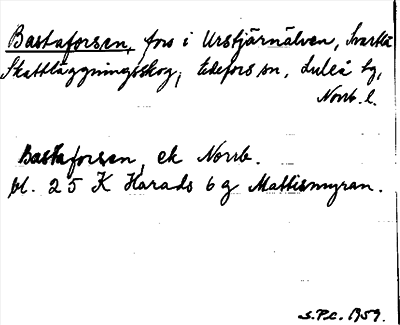 Bastaforsen, fors i Urstjärnälven, Svartlå
Skattläggningsskog, Edefors sn, Luleå tg,
Norrb. l.
Bastaforsen, ek Norrb.
bl. 25 K Harads 6 g Mattismyran.
S.P.C. 1959.